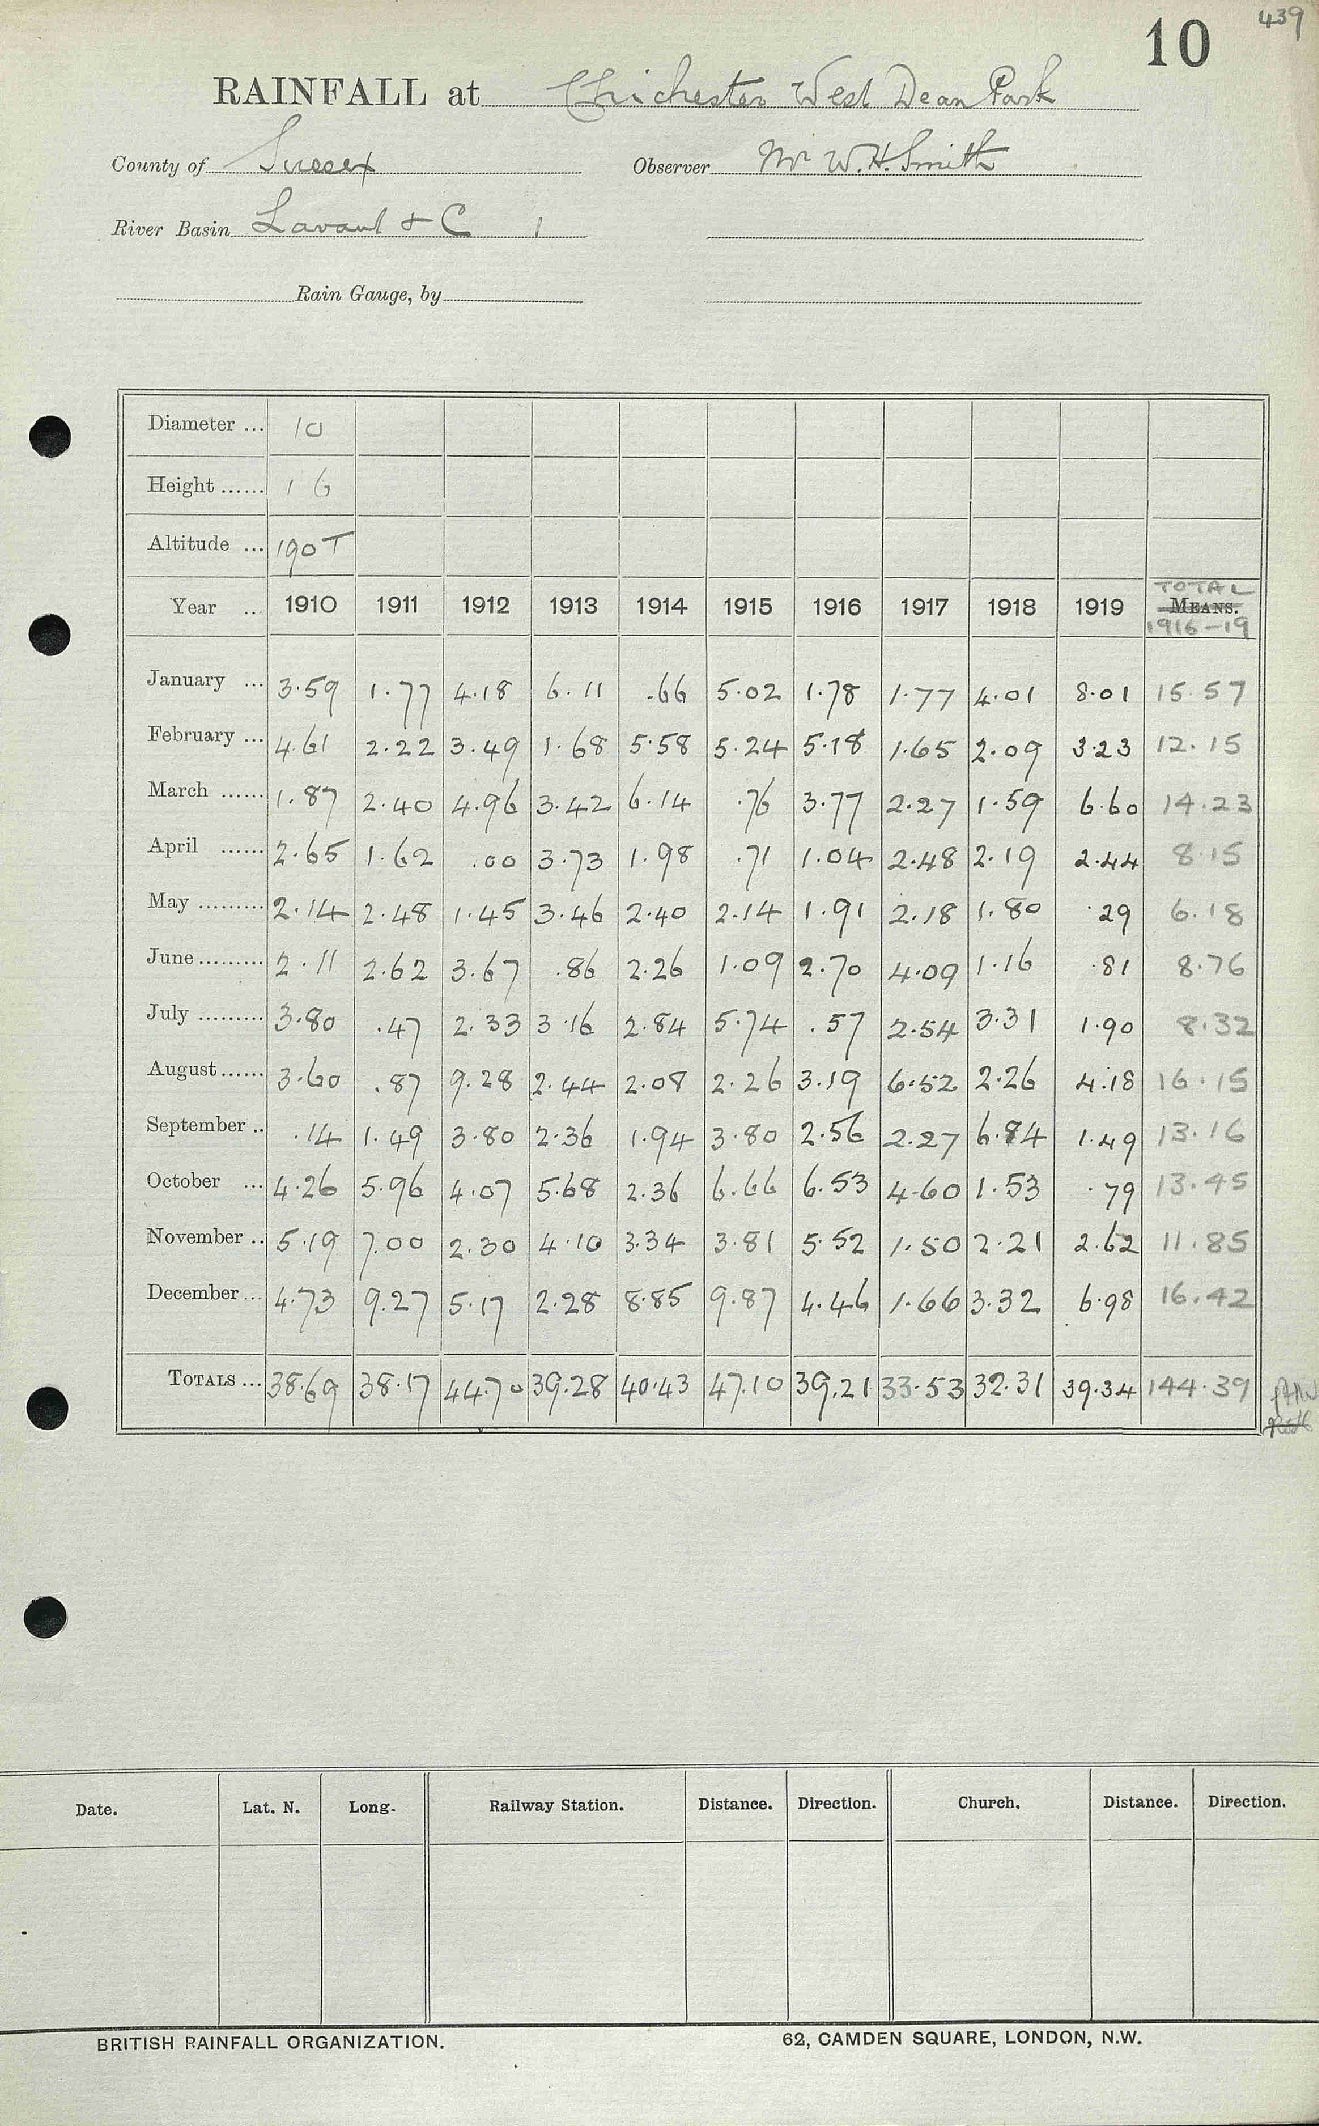 439
10
RAINFALL at Chichester West Dean Park
County of Sussex Observer Mr W.H. Smith
River Basin Lavant & C 1
Rain Gauge, by
Diameter ... 10
Height ...... 1 G
Altitude ... 190 T
Year ... 1910 1911 1912 1913 1914 1915 1916 1917 1918 1919 TOTAL MEANS. 1916-19
January ... 3.59 1.77 4.18 6.11 .66 5.02 1.78 1.77 4.01 8.01 15.57
February ... 4.61 2.22 3.49 1.68 5.58 5.24 5.18 1.65 2.09 3.23 12.15
March ...... 1.87 2.40 4.96 3.42 6.14 .76 3.77 2.27 1.59 6.60 14.23
April ...... 2.65 1.62 .00 3.73 1.98 .71 1.04 2.48 2.19 2.44 8.15
May ......... 2.14 2.48 1.45 3.46 2.40 2.14 1.91 2.18 1.80 .29 6.18
June ......... 2.11 2.62 3.67 .86 2.26 1.09 2.70 4.09 1.16 .81 8.76
July ......... 3.80 .47 2.33 3.16 2.84 5.74 .57 2.54 3.31 1.90 8.32
August ...... 3.60 .87 9.28 2.44 2.08 2.26 3.19 6.52 2.26 4.18 16.15
September .. .14 1.49 3.80 2.36 1.94 3.80 2.56 2.27 6.84 1.49 13.16
October ... 4.26 5.96 4.07 5.68 2.36 6.66 6.53 4.60 1.53 .79 13.45
November .. 5.19 7.00 2.30 4.10 3.34 3.81 5.52 1.50 2.21 2.62 11.85
December ... 4.73 9.27 5.17 2.28 8.85 9.87 4.46 1.66 3.32 6.98 16.42
TOTALS ... 38.69 38.17 44.70 39.28 40.43 47.10 39.21 33.53 32.31 39.34 144.39
Date. Lat. N. Long. Railway Station. Distance. Direction. Church. Distance. Direction.
BRITISH RAINFALL ORGANIZATION. 62, CAMDEN SQUARE, LONDON, N.W.